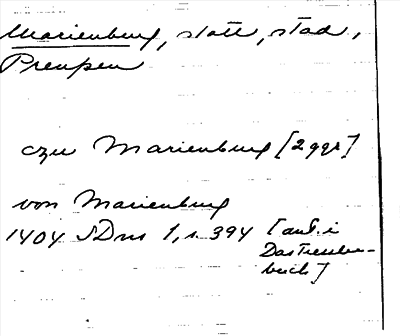 Marienburg, statt, stad,
Preußen
czu Marienburg [2 ggr]
von Marienburg
1404 SDns 1, s. 394 [auf. i
Das Tressler-
buch]